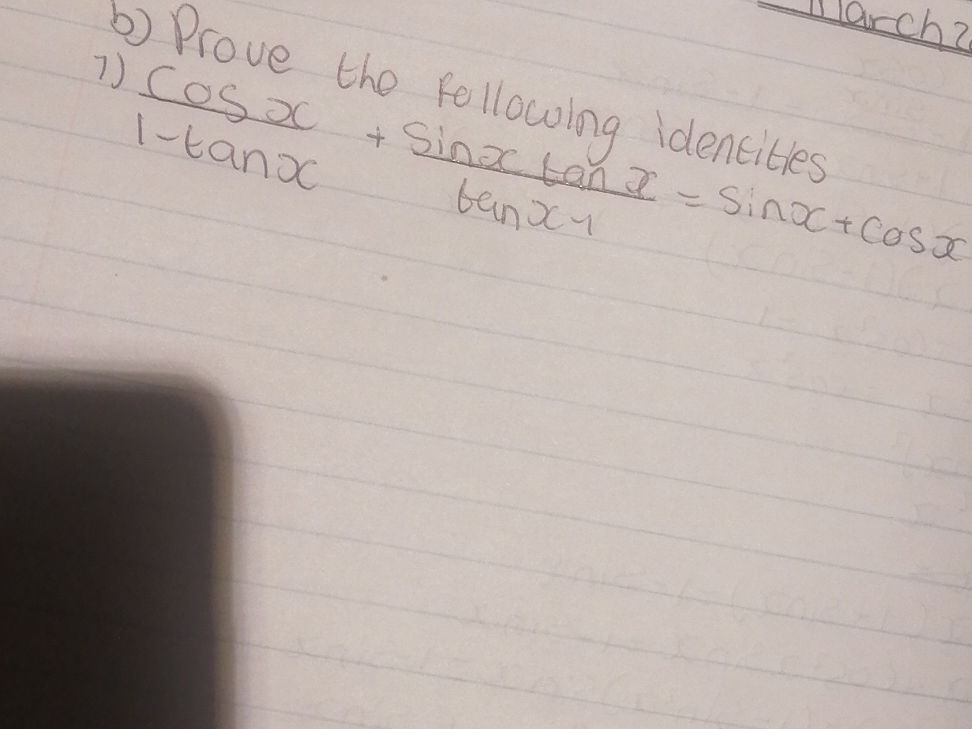 March 2
b) Prove the following identities
1) cos x / 1-tanx + sinx tan x / tanx-1 = sinx+cosx